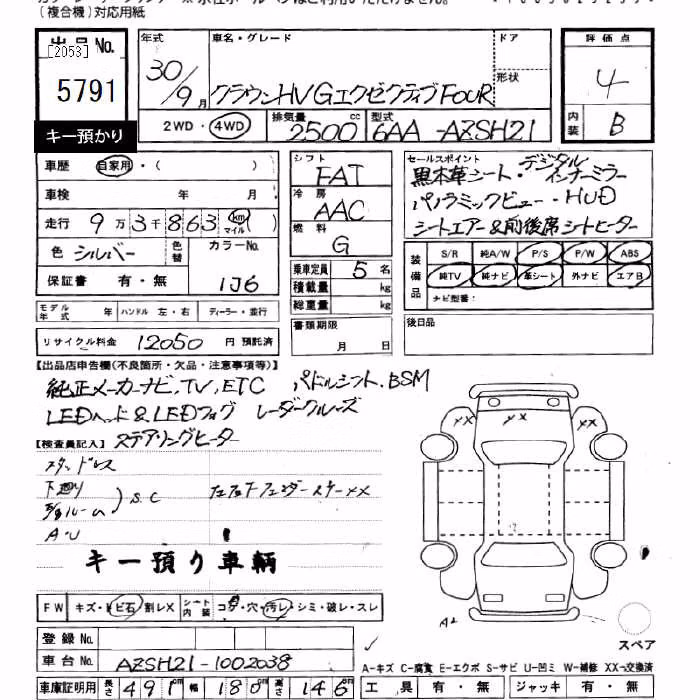 (複合機)対応用紙
出品No. 年式 車名・グレード ドア 評価点
[2053]
5791 30/9月 クラウンHV Gエクゼクティブ FOUR 形状 4
キー預かり 2WD・4WD 排気量 2500 cc 型式 6AA-AZSH21 内装 B
車歴 自家用・( ) シフト FAT セールスポイント
車検 年 月 冷房 AAC 黒本革シート・デジタルインナーミラー
走行 9万3千863 km マイル ( ) 燃料 G パノラミックビュー・HUD
シートエアー&前後席シートヒーター
色 シルバー 色替 カラーNo. 1J6
保証書 有・無
乗車定員 5名
積載量 kg
総重量 kg
装備品 S/R 純A/W P/S P/W ABS
純TV 純ナビ 革シート 外ナビ エアB
ナビ型番:
モデル年式 年 ハンドル 左・右 ディーラー・並行
書類期限 月 日
後日品
リサイクル料金 12050 円 預託済
【出品店申告欄(不良箇所・欠品・注意事項等)】
純正メーカーナビ,TV,ETC パドルシフト.BSM
LEDヘッド&LEDフォグ レーダークルーズ
ステアリングヒーター
【検査員記入】
スタッドレス
下廻り S.C
A・U
キー預り車輌
XX XX
A2
FW キズ・トビ石 割レX シート内装 コゲ・穴・汚レ・シミ・破レ・スレ
登録No.
車台No. AZSH21-1002038
スペア
A-キズ C-腐食 E-エクボ S-サビ U-凹ミ W-補修 XX-交換済
車庫証明用 長さ 491cm 幅 180cm 高さ 146cm 工具 有・無 ジャッキ 有・無